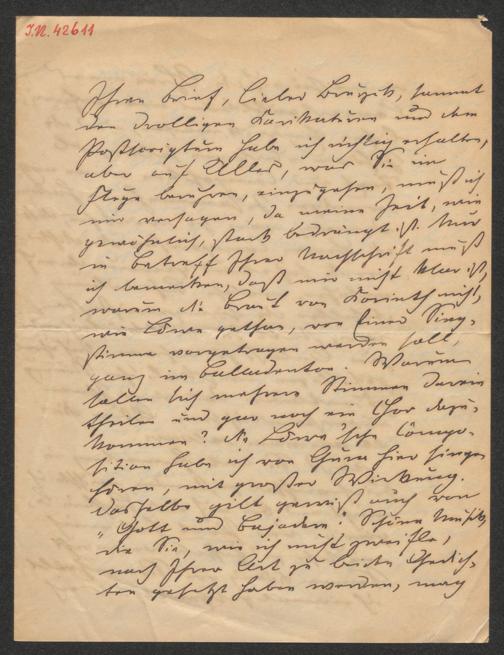 I.N. 42611
Ihren Brief, lieber Bruyck, sammt
den drolligen Karikaturen und dem
Postscriptum habe ich richtig erhalten,
aber auf Alles, was Sie im
Fluge berühren, einzugehen, muß ich
mir versagen, da meine Zeit, wie
gewöhnlich, stark bedrängt ist. Nur
in Betreff Ihrer Nachschrift muß
ich bemerken, daß mir nicht klar ist,
warum die Braut von Korinth nicht,
wie Löwe gethan, von Einer Sing-
stimme vorgetragen werden soll,
ganz im Balladenton. Warum
sollen sich mehrere Stimmen darein
theilen und gar noch ein Chor dazu-
kommen? Die Löwe'sche Compo-
sition habe ich von Gura hier singen
hören, mit großer Wirkung.
Dasselbe gilt gewiß auch von
"Gott und Bajadere". Schöne Musik,
die Sie, wie ich nicht zweifle,
nach Ihrer Art zu beiden Gedich-
ten gesetzt haben werden, mag